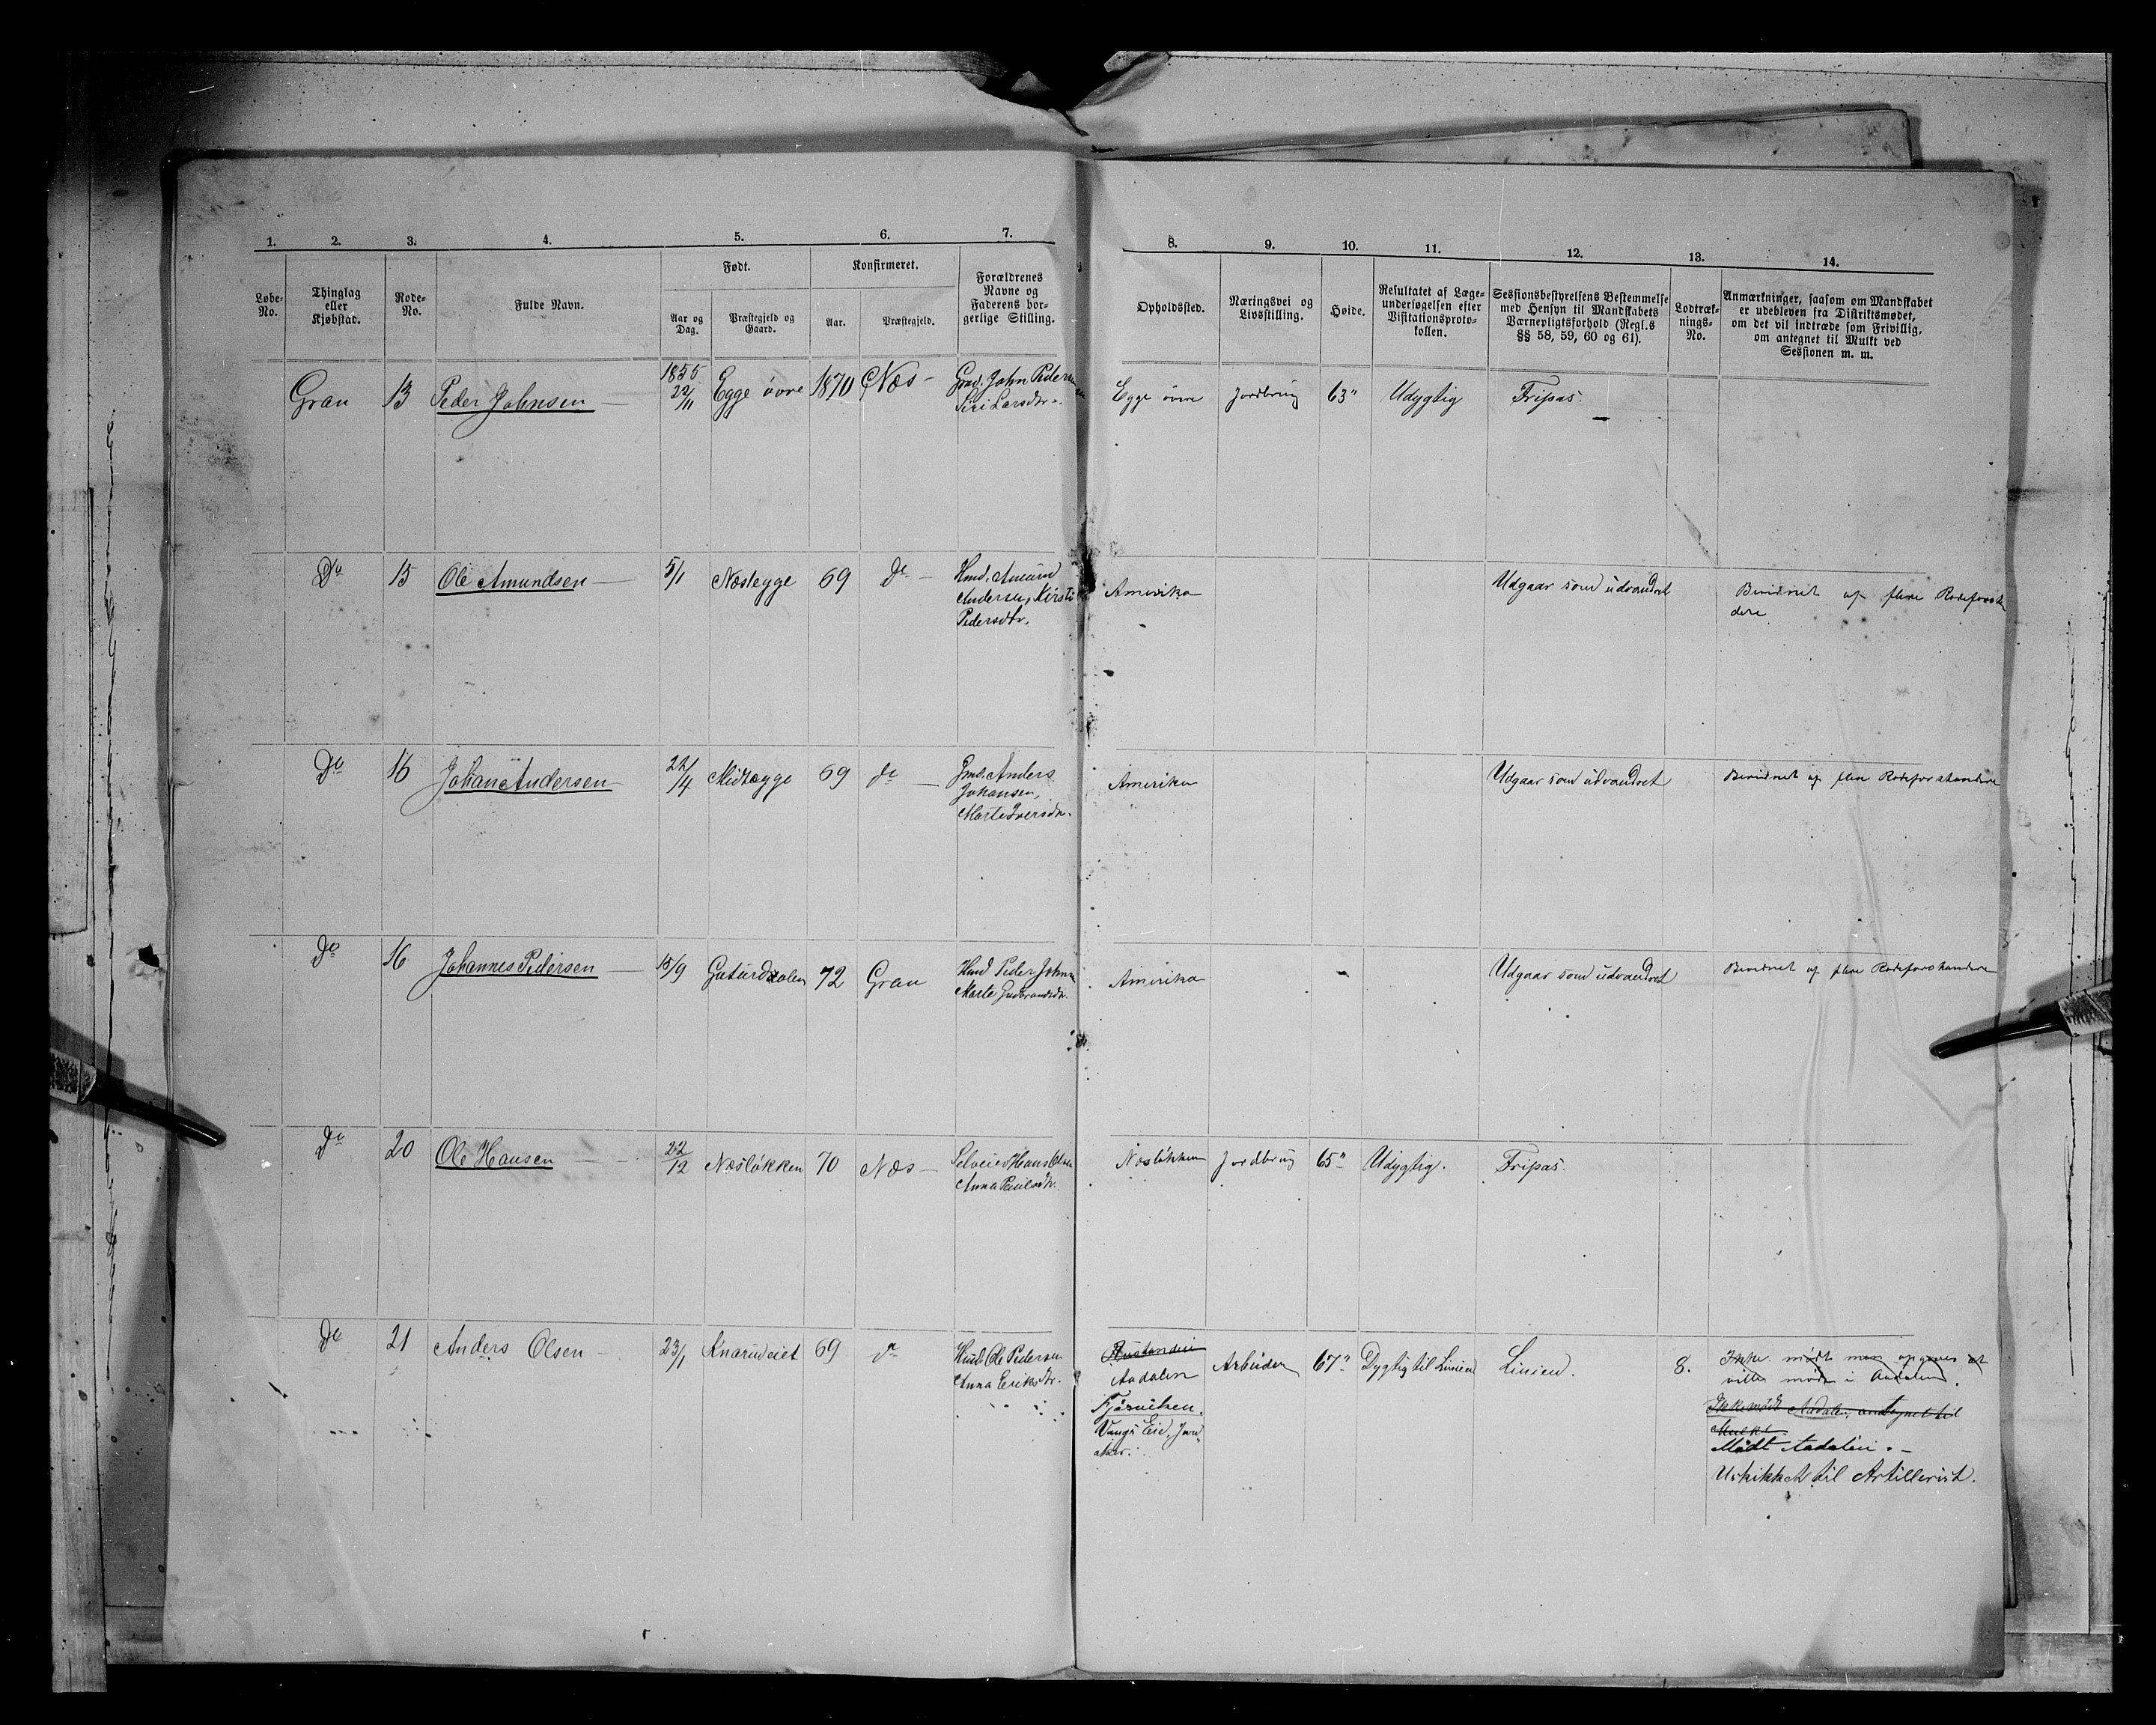 1. 2. 3. 4. 5. 6. 7. 8. 9. 10. 11. 12. 13. 14.
Løbe-
No.
Thinglag
eller
Kjøbstad.
Rode-
No.
Fulde Navn.
Født.
Aar og
Dag.
Præstegjeld og
Gaard.
Konfirmeret.
Aar.
Præstegjeld.
Forældrenes
Navne og
Faderens bor-
gerlige Stilling.
Opholdssted.
Næringsvei og
Livsstilling.
Høide.
Resultatet af Læge-
undersøgelsen efter
Visitationsproto-
kollen.
Sessionsbestyrelsens Bestemmelse
med Hensyn til Mandskabets
Værnepligtsforhold (Regl.s
§§ 58, 59, 60 og 61).
Lodtræk-
nings-
No.
Anmærkninger, saasom om Mandskabet
er udebleven fra Distriktsmødet,
om det vil indtræde som Frivillig,
om antegnet til Mulkt ved
Sessionen m. m.
Gran 13 Peder Johnsen
1855
22/11
Egge øvre 1870 Næs
Grd. John Pedersen
Siri Larsdtr.
Egge øvre Jordbrug 63" Udygtig Fripas.
Do 15 Ole Amundsen 5/1 Næslegge 69 Do
Hmd. Amund
Andersen, Kirsti
Pedersdtr.
Amerika Udgaar som udvandret
Bevidnet af flere Rodeforstan
dere.
Do 16 Johan Andersen 22/4 Midtegge 69 do
Gmd. Anders
Johansen,
Marte Iversdtr.
Amerika Udgaar som udvandret Bevidnet af flere Rodeforstandere
Do 16 Johannes Pedersen 15/9 72 Gran
Hmd Peder Johns
Marte Gudbrandsdtr.
Amerika Udgaar som udvandret Bevidnet af flere Rodeforstandere
Do 20 Ole Hansen 22/12 Næsløkken 70 Næs
Selveier Hans Olsen
Anna Paulsdtr.
Næsløkken Jordbrug 65" Udygtig. Fripas.
Do 21 Anders Olsen 23/1 Knarudeiet 69 do
Hmd. Ole Pedersen
Anna Eriksdtr.
Aadalen
Vangs Eie, Jevn
aker.
Arbeider 67" Dygtig til Linien Linien. 8.
Ikke mødt men opgives at
ville møde i Aadalen.
Ikke mødt Aadalen, antegnet til
Mulkt.
Mødt Aadalen.
Uskikket til Artillerist.